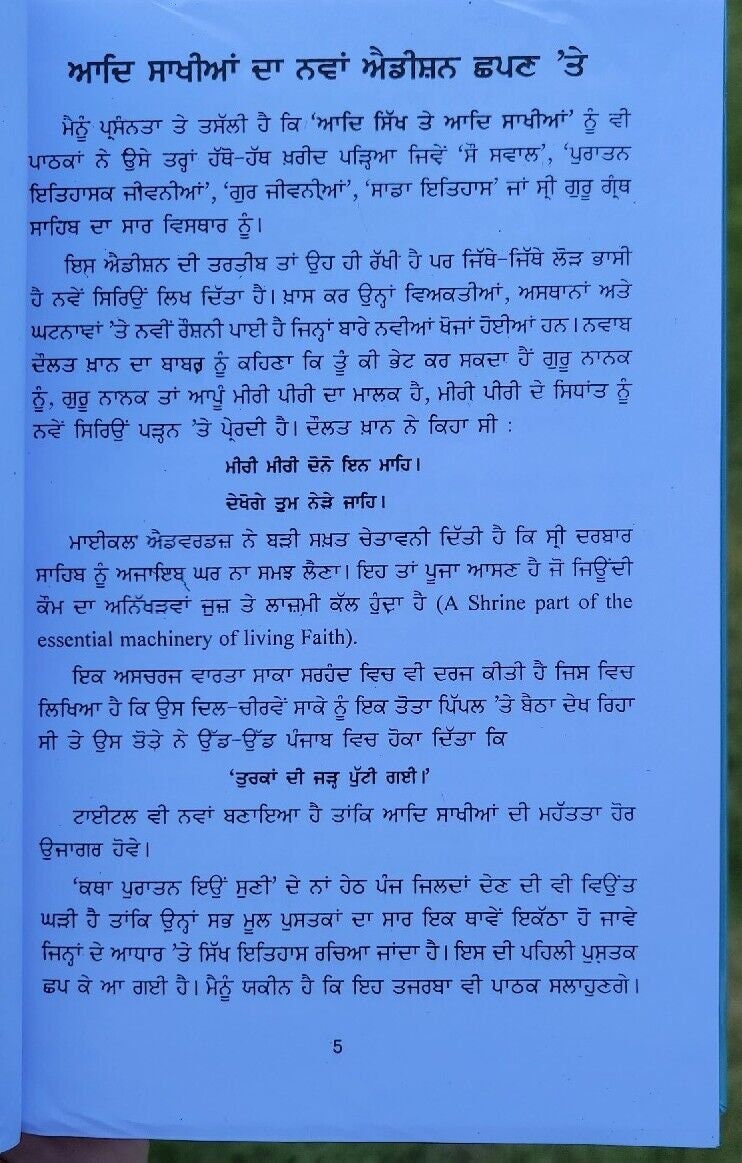 ਆਦਿ ਸਾਖੀਆਂ ਦਾ ਨਵਾਂ ਐਡੀਸ਼ਨ ਛਪਣ ’ਤੇ
ਮੈਨੂੰ ਪ੍ਰਸੰਨਤਾ ਤੇ ਤਸੱਲੀ ਹੈ ਕਿ ‘ਆਦਿ ਸਿੱਖ ਤੇ ਆਦਿ ਸਾਖੀਆਂ’ ਨੂੰ ਵੀ
ਪਾਠਕਾਂ ਨੇ ਉਸੇ ਤਰ੍ਹਾਂ ਹੱਥੋ-ਹੱਥ ਖ਼ਰੀਦ ਪੜ੍ਹਿਆ ਜਿਵੇਂ ‘ਸੌ ਸਵਾਲ’, ‘ਪੁਰਾਤਨ
ਇਤਿਹਾਸਕ ਜੀਵਨੀਆਂ’, ‘ਗੁਰ ਜੀਵਨੀਆਂ’, ‘ਸਾਡਾ ਇਤਿਹਾਸ’ ਜਾਂ ਸ੍ਰੀ ਗੁਰੂ ਗ੍ਰੰਥ
ਸਾਹਿਬ ਦਾ ਸਾਰ ਵਿਸਥਾਰ ਨੂੰ।
ਇਸ ਐਡੀਸ਼ਨ ਦੀ ਤਰਤੀਬ ਤਾਂ ਉਹ ਹੀ ਰੱਖੀ ਹੈ ਪਰ ਜਿੱਥੇ-ਜਿੱਥੇ ਲੋੜ ਭਾਸੀ
ਹੈ ਨਵੇਂ ਸਿਰਿਉਂ ਲਿਖ ਦਿੱਤਾ ਹੈ। ਖ਼ਾਸ ਕਰ ਉਨ੍ਹਾਂ ਵਿਅਕਤੀਆਂ, ਅਸਥਾਨਾਂ ਅਤੇ
ਘਟਨਾਵਾਂ ’ਤੇ ਨਵੀਂ ਰੌਸ਼ਨੀ ਪਾਈ ਹੈ ਜਿਨ੍ਹਾਂ ਬਾਰੇ ਨਵੀਆਂ ਖੋਜਾਂ ਹੋਈਆਂ ਹਨ। ਨਵਾਬ
ਦੌਲਤ ਖ਼ਾਨ ਦਾ ਬਾਬਰ ਨੂੰ ਕਹਿਣਾ ਕਿ ਤੂੰ ਕੀ ਭੇਟ ਕਰ ਸਕਦਾ ਹੈਂ ਗੁਰੂ ਨਾਨਕ
ਨੂੰ, ਗੁਰੂ ਨਾਨਕ ਤਾਂ ਆਪੂੰ ਮੀਰੀ ਪੀਰੀ ਦਾ ਮਾਲਕ ਹੈ, ਮੀਰੀ ਪੀਰੀ ਦੇ ਸਿਧਾਂਤ ਨੂੰ
ਨਵੇਂ ਸਿਰਿਉਂ ਪੜ੍ਹਨ ’ਤੇ ਪ੍ਰੇਰਦੀ ਹੈ। ਦੌਲਤ ਖ਼ਾਨ ਨੇ ਕਿਹਾ ਸੀ :
ਮੀਰੀ ਮੀਰੀ ਦੋਨੋ ਇਨ ਮਾਹਿ।
ਦੇਖੋਗੇ ਤੁਮ ਨੇੜੇ ਜਾਹਿ।
ਮਾਈਕਲ ਐਡਵਰਡਜ਼ ਨੇ ਬੜੀ ਸਖ਼ਤ ਚੇਤਾਵਨੀ ਦਿੱਤੀ ਹੈ ਕਿ ਸ੍ਰੀ ਦਰਬਾਰ
ਸਾਹਿਬ ਨੂੰ ਅਜਾਇਬ ਘਰ ਨਾ ਸਮਝ ਲੈਣਾ। ਇਹ ਤਾਂ ਪੂਜਾ ਆਸਣ ਹੈ ਜੋ ਜਿਊਂਦੀ
ਕੌਮ ਦਾ ਅਨਿੱਖੜਵਾਂ ਜੁਜ਼ ਤੇ ਲਾਜ਼ਮੀ ਕੱਲ ਹੁੰਦਾ ਹੈ (A Shrine part of the
essential machinery of living Faith).
ਇਕ ਅਸਚਰਜ ਵਾਰਤਾ ਸਾਕਾ ਸਰਹੰਦ ਵਿਚ ਵੀ ਦਰਜ ਕੀਤੀ ਹੈ ਜਿਸ ਵਿਚ
ਲਿਖਿਆ ਹੈ ਕਿ ਉਸ ਦਿਲ-ਚੀਰਵੇਂ ਸਾਕੇ ਨੂੰ ਇਕ ਤੋਤਾ ਪਿੱਪਲ ’ਤੇ ਬੈਠਾ ਦੇਖ ਰਿਹਾ
ਸੀ ਤੇ ਉਸ ਤੋਤੇ ਨੇ ਉੱਡ-ਉੱਡ ਪੰਜਾਬ ਵਿਚ ਹੋਕਾ ਦਿੱਤਾ ਕਿ
‘ਤੁਰਕਾਂ ਦੀ ਜੜ੍ਹ ਪੁੱਟੀ ਗਈ।’
ਟਾਈਟਲ ਵੀ ਨਵਾਂ ਬਣਾਇਆ ਹੈ ਤਾਂਕਿ ਆਦਿ ਸਾਖੀਆਂ ਦੀ ਮਹੱਤਤਾ ਹੋਰ
ਉਜਾਗਰ ਹੋਵੇ।
‘ਕਥਾ ਪੁਰਾਤਨ ਇਉਂ ਸੁਣੀ’ ਦੇ ਨਾਂ ਹੇਠ ਪੰਜ ਜਿਲਦਾਂ ਦੇਣ ਦੀ ਵੀ ਵਿਉਂਤ
ਘੜੀ ਹੈ ਤਾਂਕਿ ਉਨ੍ਹਾਂ ਸਭ ਮੂਲ ਪੁਸਤਕਾਂ ਦਾ ਸਾਰ ਇਕ ਥਾਵੇਂ ਇਕੱਠਾ ਹੋ ਜਾਵੇ
ਜਿਨ੍ਹਾਂ ਦੇ ਆਧਾਰ ’ਤੇ ਸਿੱਖ ਇਤਿਹਾਸ ਰਚਿਆ ਜਾਂਦਾ ਹੈ। ਇਸ ਦੀ ਪਹਿਲੀ ਪੁਸਤਕ
ਛਪ ਕੇ ਆ ਗਈ ਹੈ। ਮੈਨੂੰ ਯਕੀਨ ਹੈ ਕਿ ਇਹ ਤਜਰਬਾ ਵੀ ਪਾਠਕ ਸਲਾਹੁਣਗੇ।
5